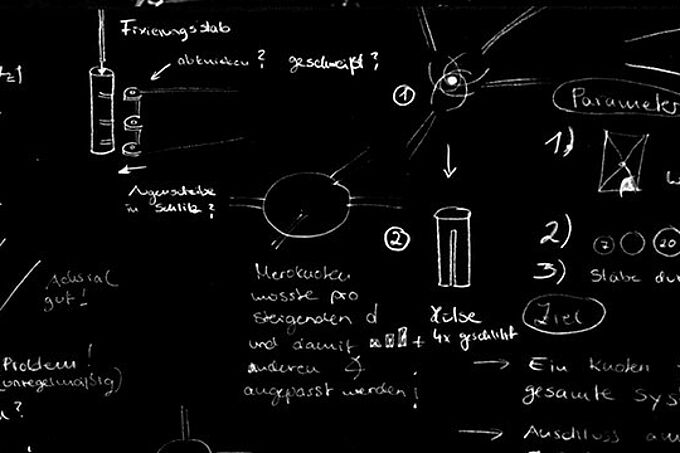 Fixierungsstab
abknicken? geschweißt?
Augenscheibe
in Schlitz?
gut!
Problem!
(unregelmäßig)
?
Meroknoten
müsste pro
steigenden d
und damit
anderen ∡
angepasst werden!
1
2
Hülse
+ 4x geschlitzt
Parameter
1)
2) 7 20
3) Stäbe
Ziel
→ Ein Knoten
gesamte Sys
→ Anschluss